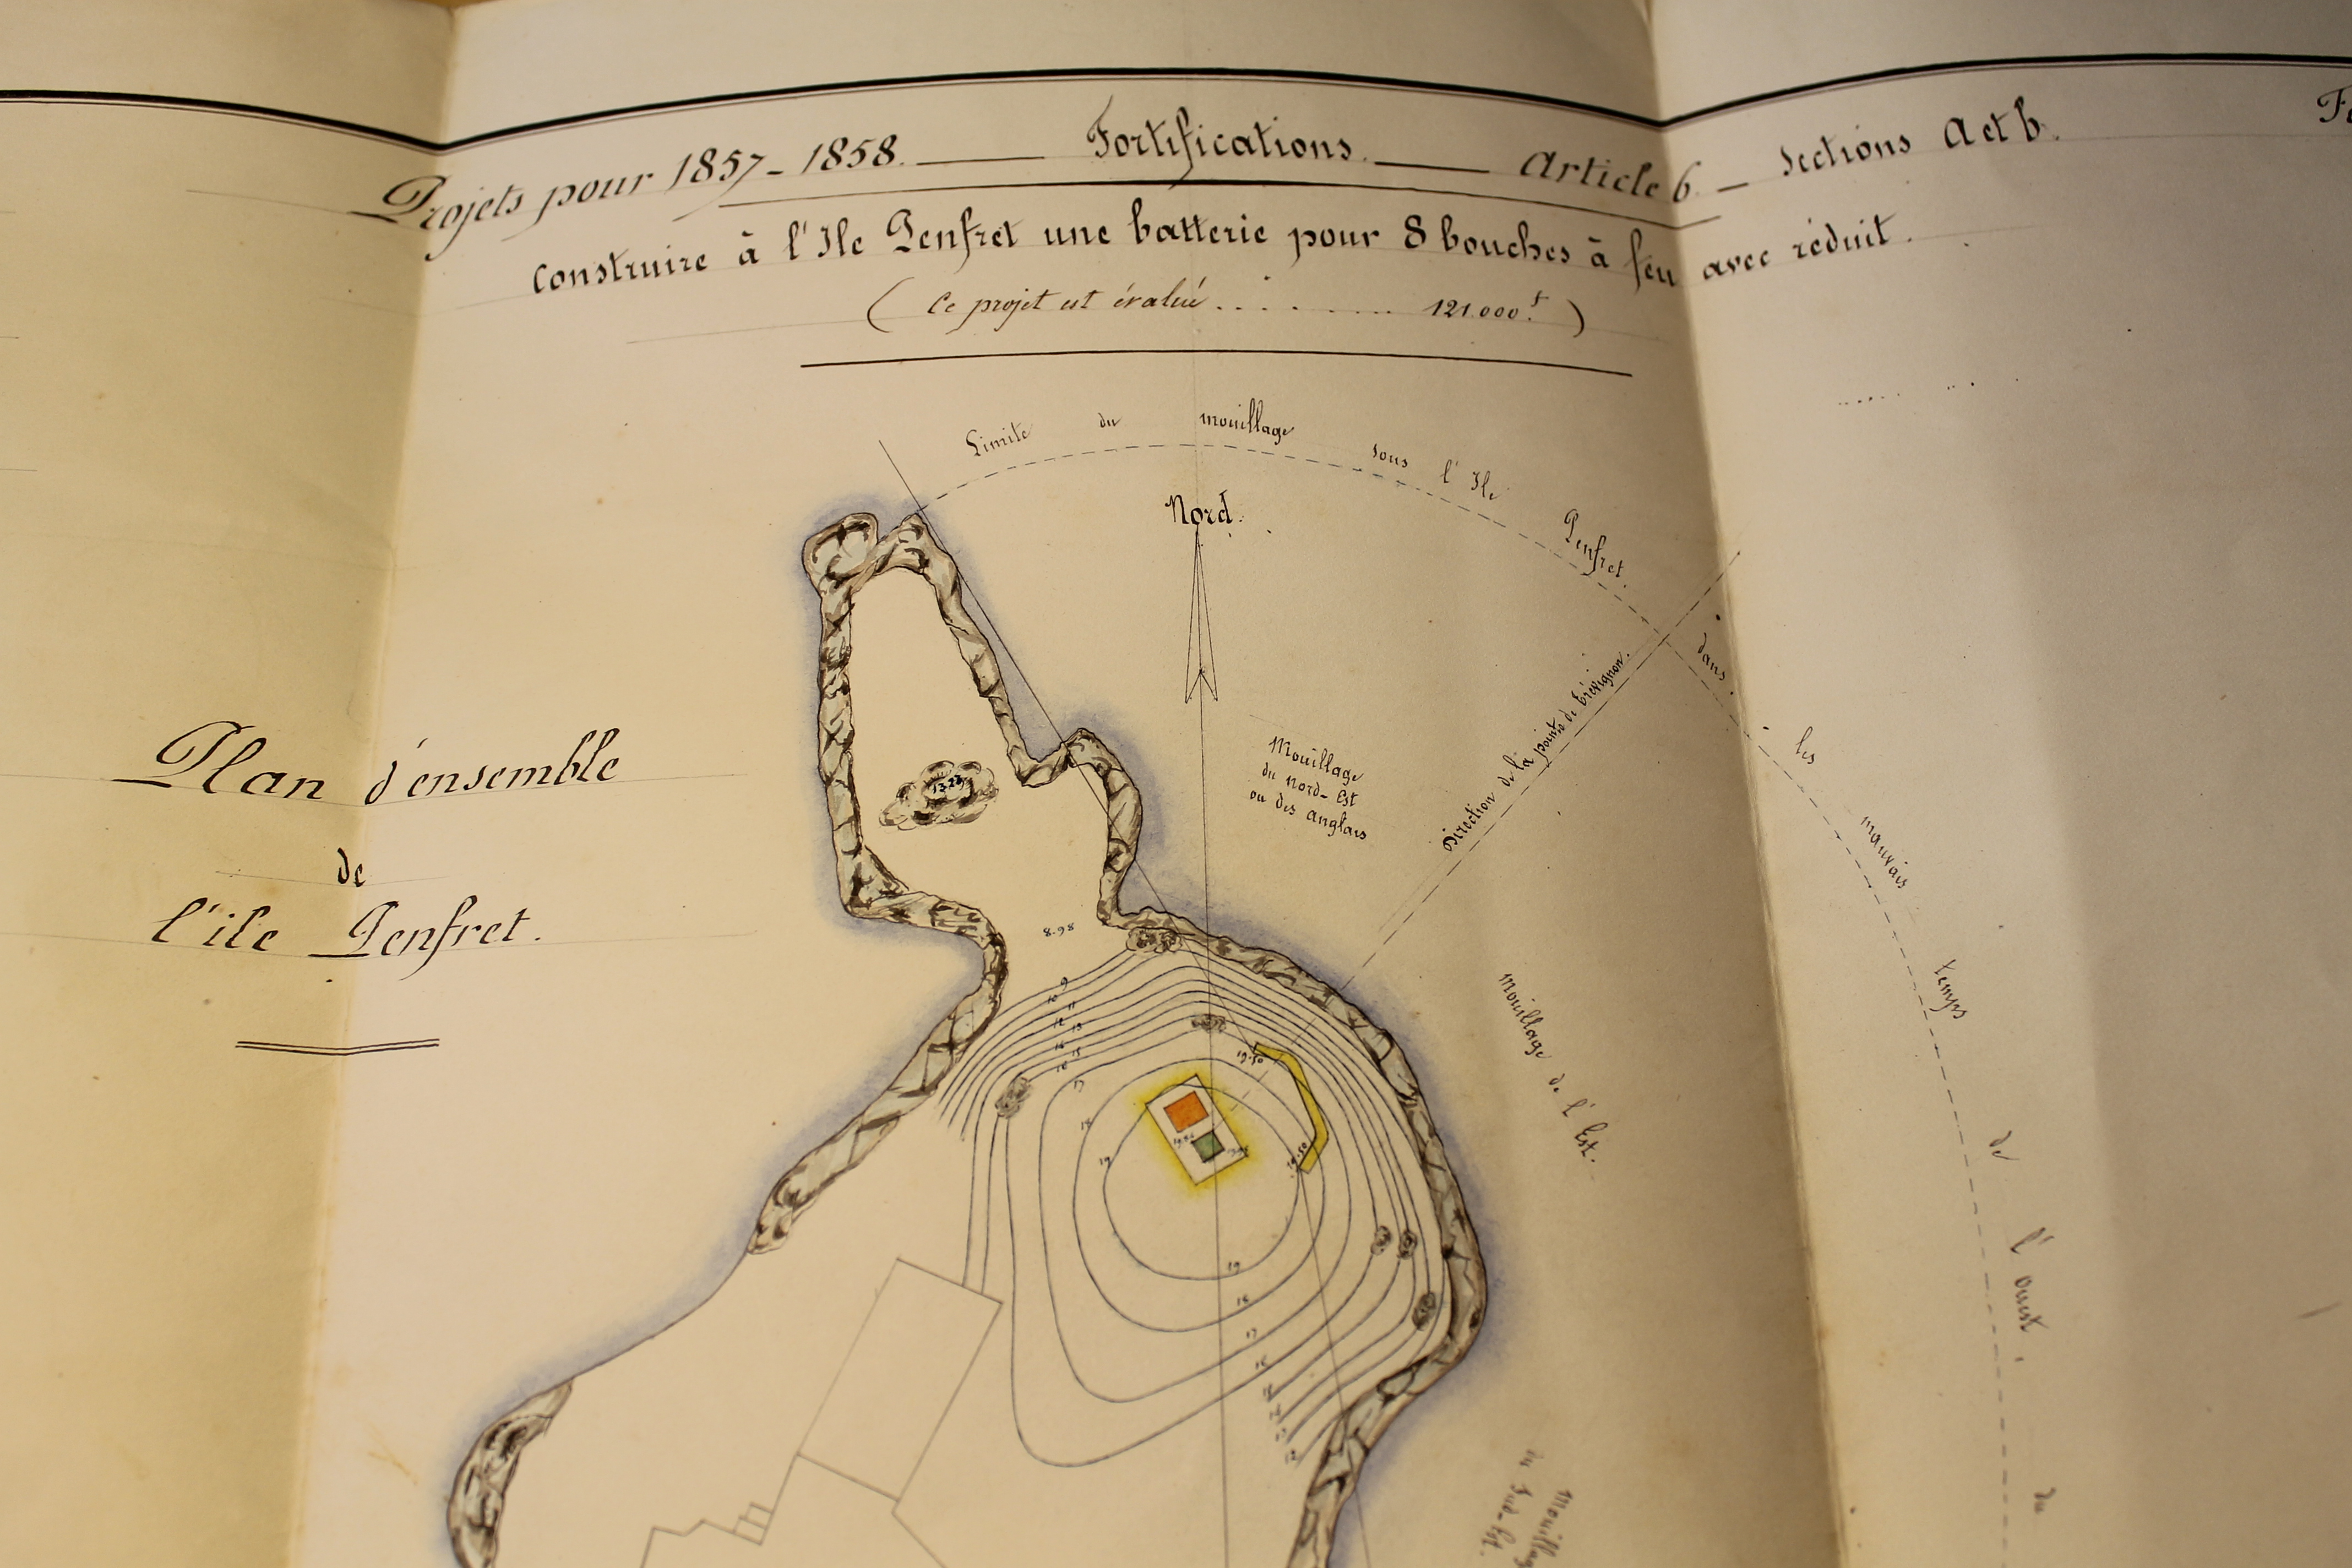 Projets pour 1857-1858. — Fortifications. — Article 6. — Sections A et b.
Construire à l'Ile Penfret une batterie pour 8 bouches à feu avec réduit.
( Ce projet est évalué . . . . . . . . 121.000f )
Limite du mouillage sous l'Ile Penfret. dans les mauvais temps de l'ouest, du
Nord.
Plan d'ensemble
de
l'ile Penfret.
Mouillage
du nord-Est
ou des anglais
Direction de la pointe de Trévignon.
Mouillage de l'Est.
Mouillage
du Sud-Est.
13.23
8.98
9
10
11
12
13
17
18
19
19.50
19.50
19
18
17
16